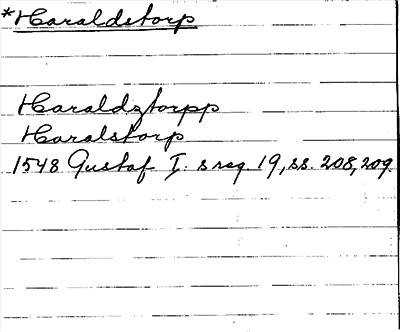 *Haraldstorp
Haraldztorpp
Haralstorp
1548 Gustaf I:s reg 19, ss. 208, 209.